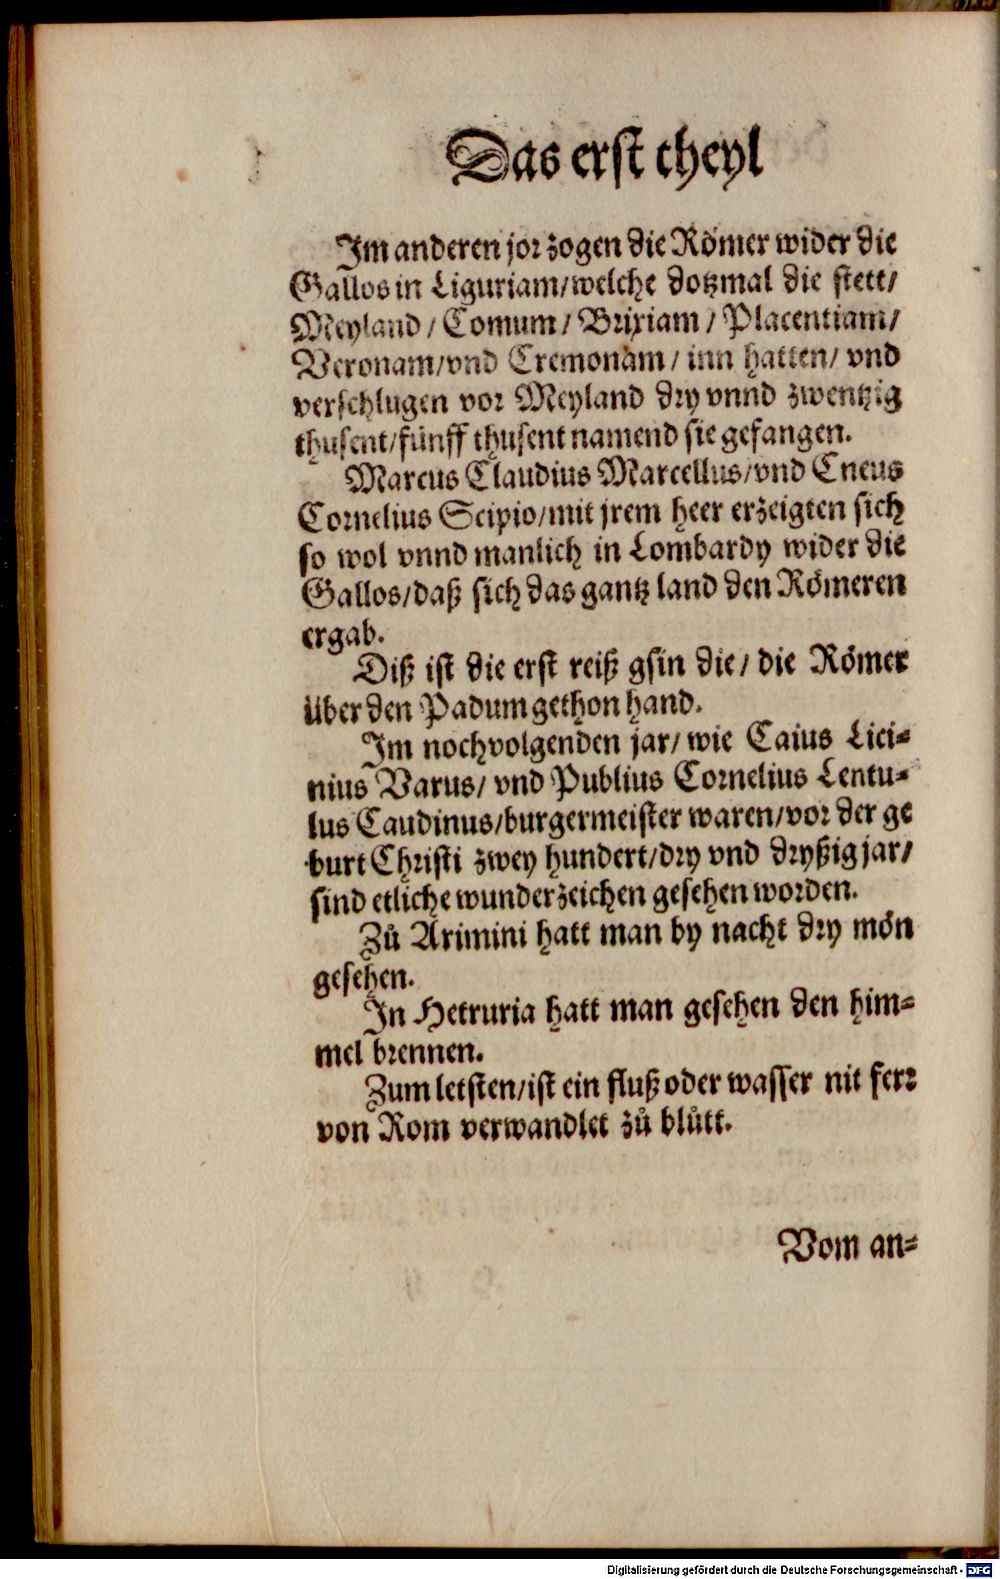 Das erst theyl
Im anderen jor zogen die Römer wider die
Gallos in Liguriam/welche dotzmal die stett/
Meyland / Comum / Brixiam / Placentiam/
Veronam/vnd Cremonam / inn hatten/ vnd
verschlugen vor Meyland dry vnnd zwentzig
thusent/fünff thusent namend sie gefangen.
Marcus Claudius Marcellus/vnd Cneus
Cornelius Scipio/mit jrem heer erzeigten sich
so wol vnnd manlich in Lombardy wider die
Gallos/daß sich das gantz land den Römeren
ergab.
Diß ist die erst reiß gsin die/ die Römer
über den Padum gethon hand.
Im nochvolgenden jar/ wie Caius Lici-
nius Varus/ vnd Publius Cornelius Lentu-
lus Caudinus/burgermeister waren/vor der ge
burt Christi zwey hundert/dry vnd dryßig jar/
sind etliche wunderzeichen gesehen worden.
Zů Arimini hatt man by nacht dry mön
gesehen.
In Hetruria hatt man gesehen den him-
mel brennen.
Zum letsten/ist ein fluß oder wasser nit ferr
von Rom verwandlet zů blůtt.
Vom an-
Digitalisierung gefördert durch die Deutsche Forschungsgemeinschaft - DFG